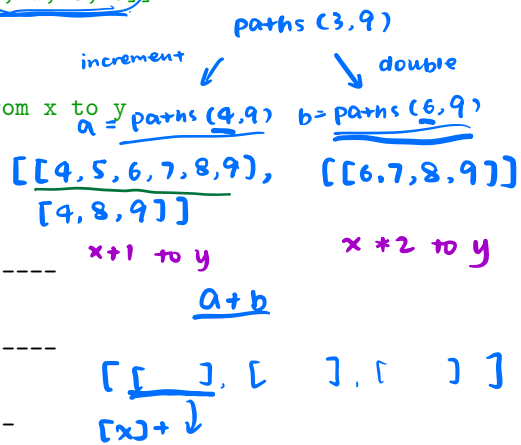 paths (3,9)
increment
double
om x to y
a = paths (4,9) b= paths (6,9)
[[4,5,6,7,8,9], [[6,7,8,9]]
[4,8,9]]
x+1 to y x *2 to y
----
a+b
----
[ [ ], [ ], [ ] ]
-
[x]+